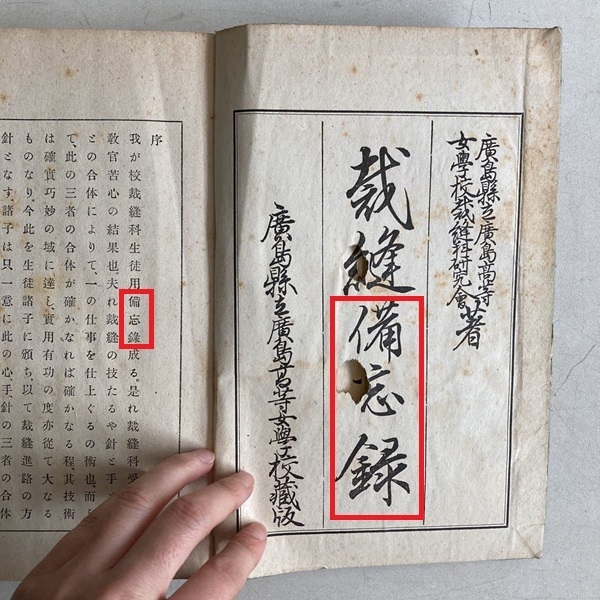 廣島縣立廣島高等
女學校裁縫科研究會著
裁縫備忘録
廣島縣立廣島高等女學校藏版
序
我が校裁縫科生徒用備忘錄成る。是れ裁縫科受
敎官苦心の結果也。夫れ裁縫の技たるや針と手
との合体によりて、一の仕事を仕上ぐるの術也。而
て、此の三者の合体が確かなれば確かなる程、其技術
は確實巧妙の域に達し、實用有功の度亦從て大なる
ものなり。今此を生徒諸子に頒ち、以て裁縫進路の方
針となす。諸子は只一意に此の心、手、針の三者の合体